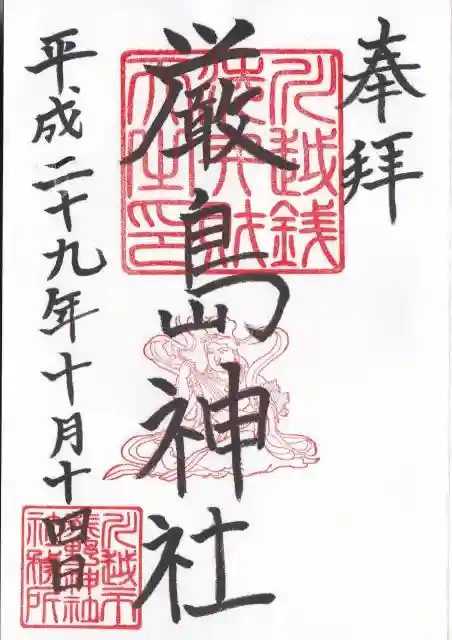 奉拝
川越銭
洗弁財
天之印
厳島神社
平成二十九年十月十四日
川越市
熊野神社
社務所